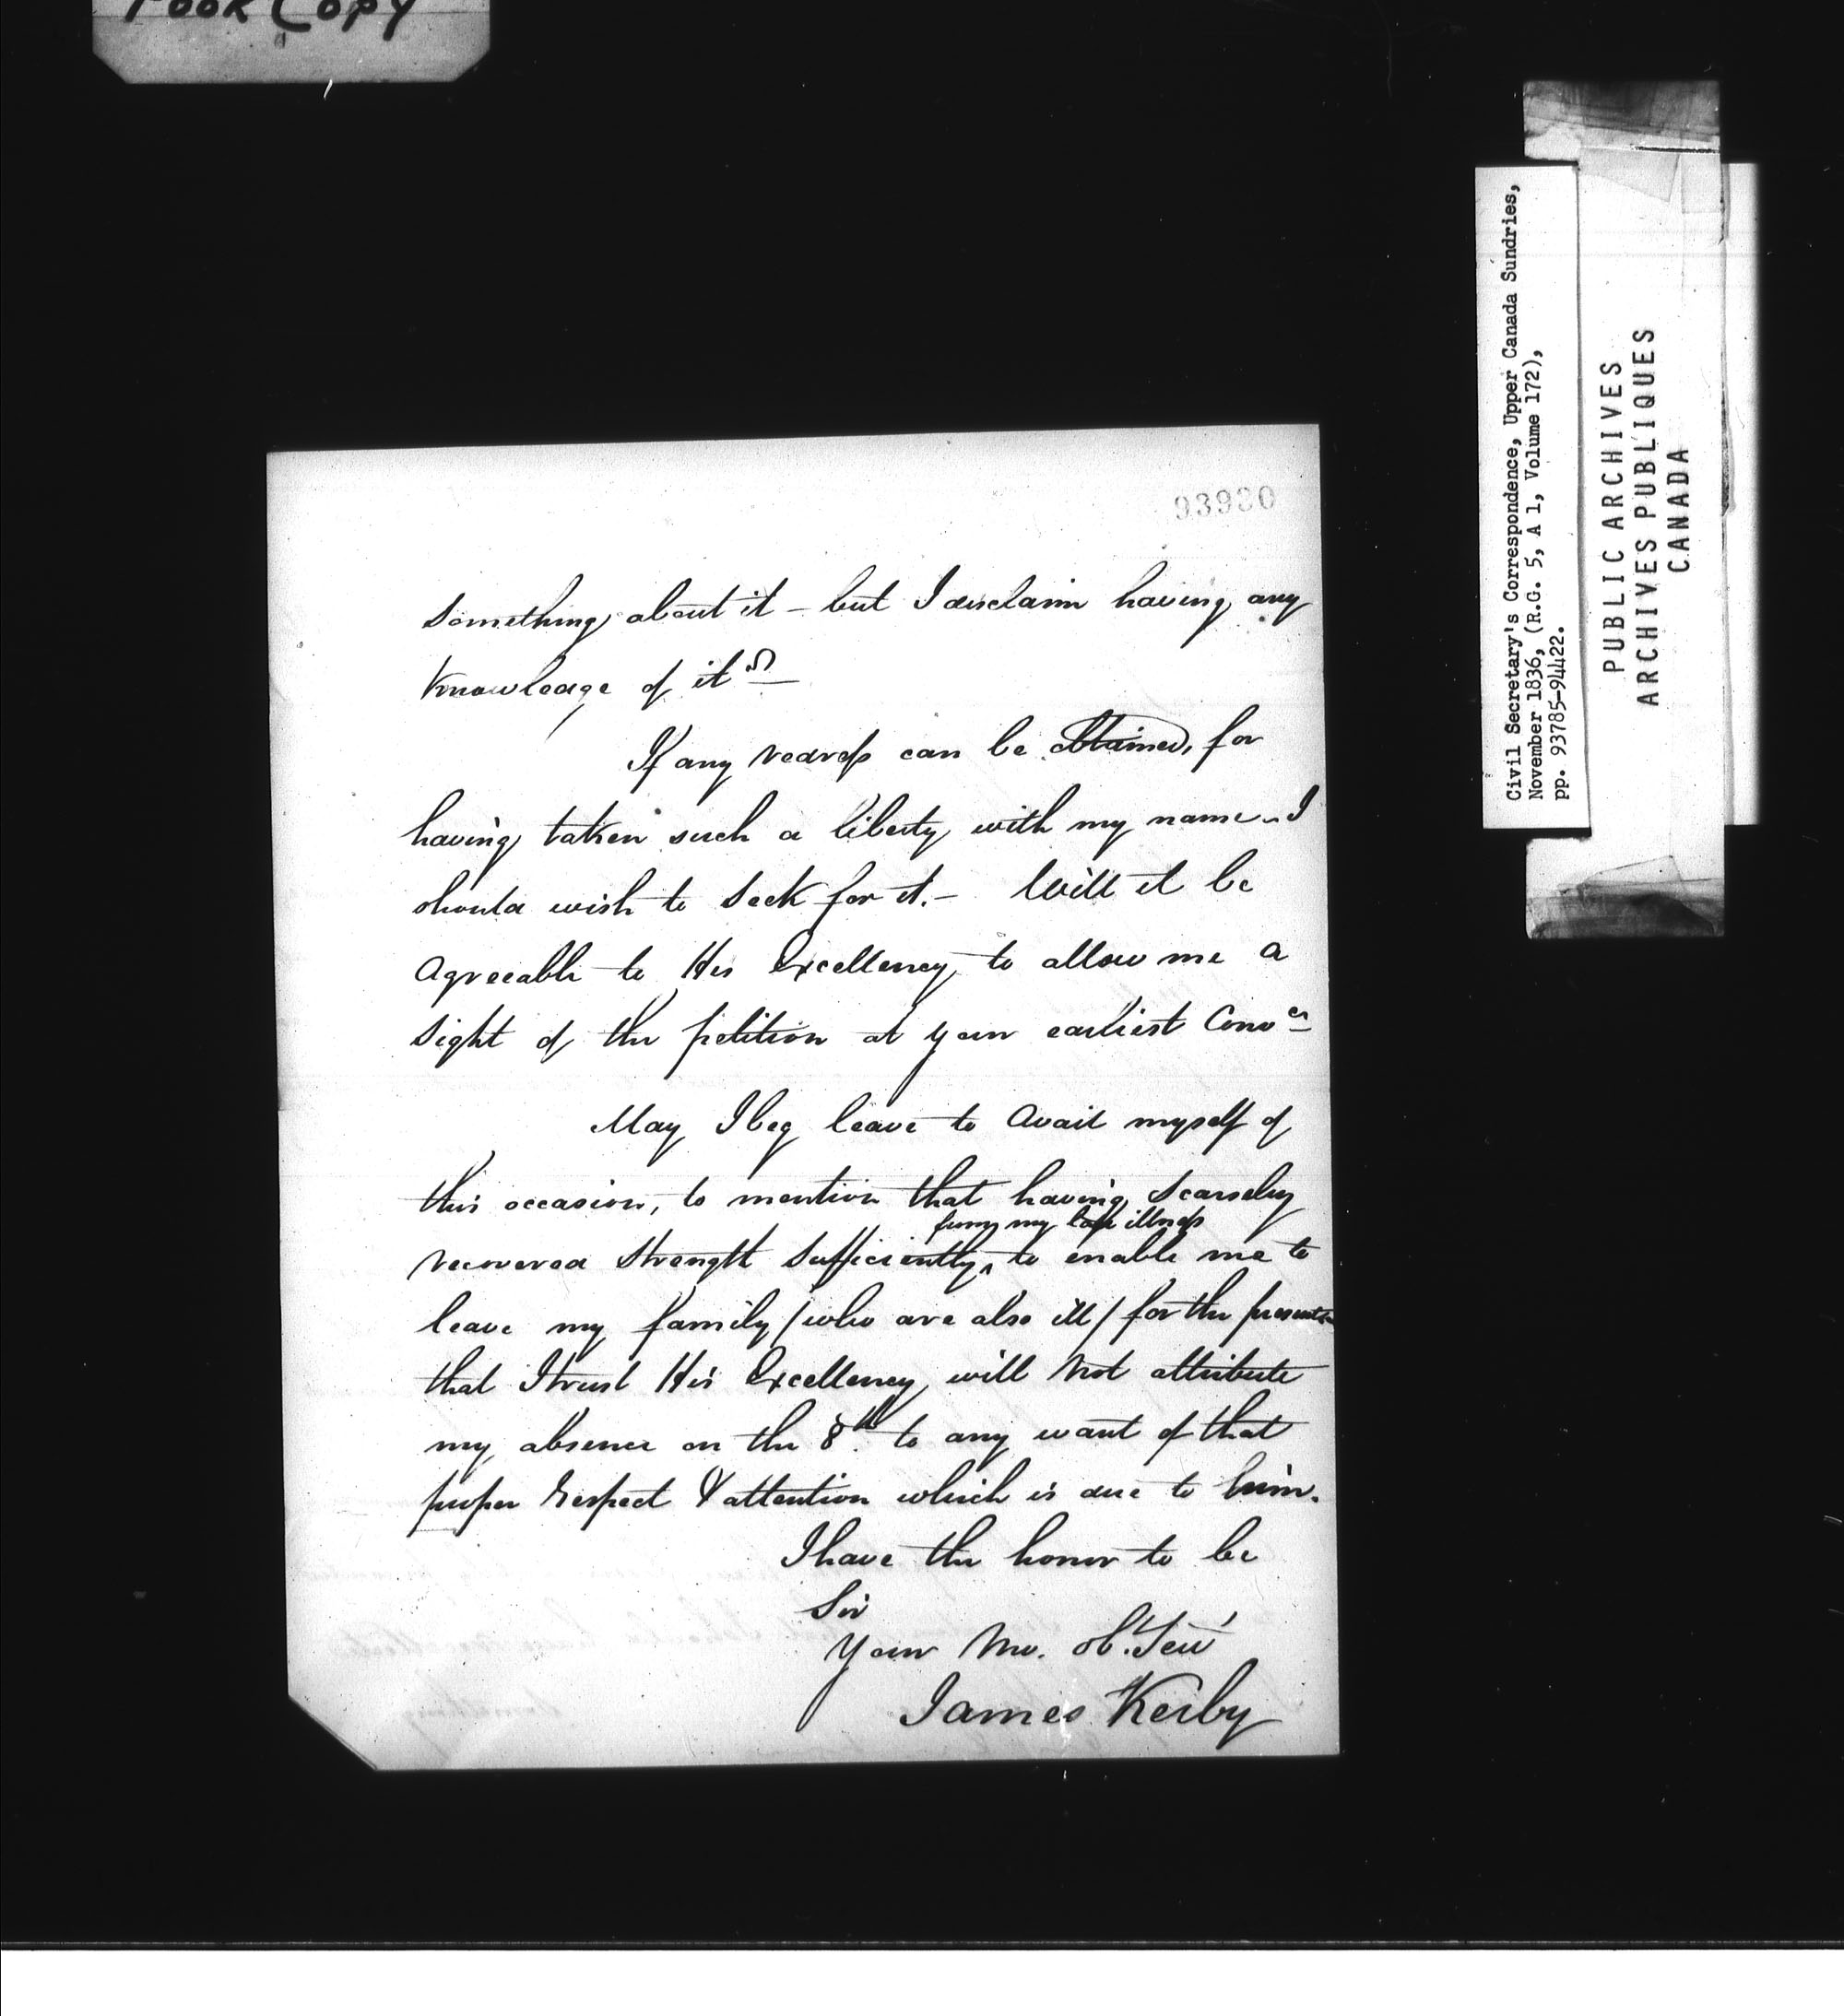 Poor Copy
93930
something about it – but I disclaim having any
Knowledge of it
If any redress can be obtained, for
having taken such a liberty with my name – I
should wish to seek for it. – Will it be
agreeable to His Excellency to allow me a
sight of the petition at your earliest Conv
May I beg leave to avail myself of
this occasion, to mention that having scarsely
from my late illness
recovered strength sufficiently ^ to enable me to
leave my family / who are also ill / for the present
that I trust His Excellency will not attribute
my absence on the 8th. to any want of that
proper respect & attention which is due to him.
I have the honor to be
Sir
Your Mo. Ob. Serv
James Kerby
Civil Secretary's Correspondence, Upper Canada Sundries,
November 1836, (R.G. 5, A 1, Volume 172),
pp. 93785-94422.
PUBLIC ARCHIVES
ARCHIVES PUBLIQUES
CANADA